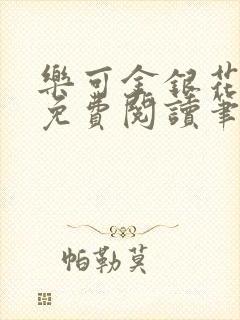 樂可金銀花
免費閱讀筆
帕勒莫